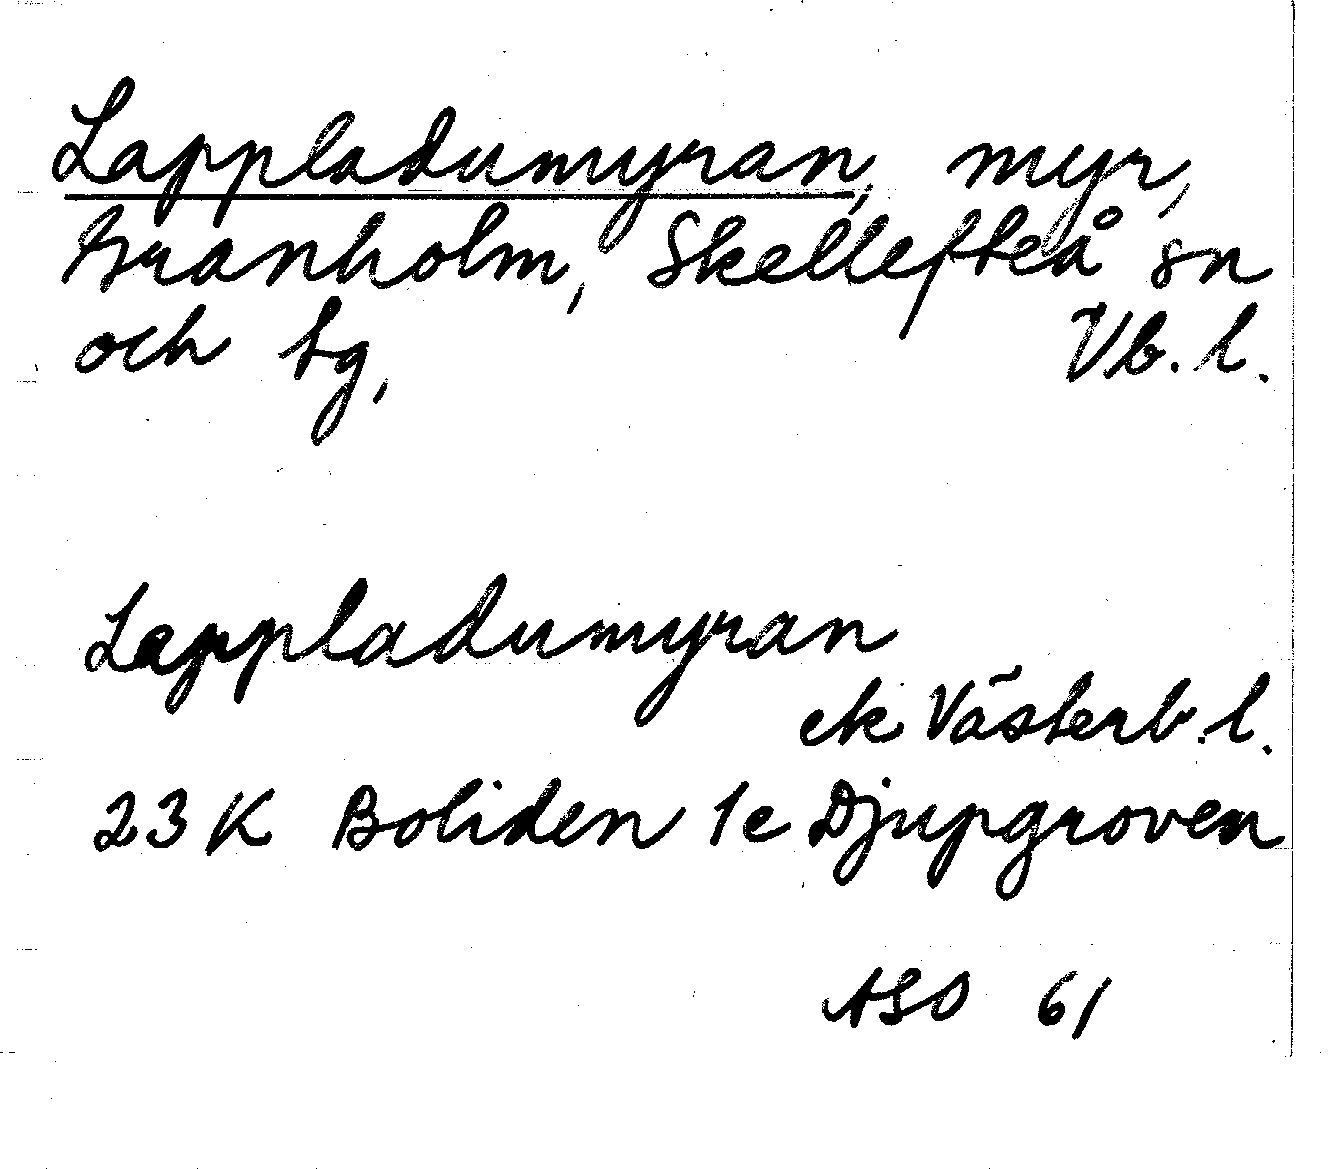 Lappladumyran, myr,
Granholm, Skellefteå sn
och tg, Vb. l.
Lappladumyran
ek Västerb. l.
23 K Boliden 1e Djupgroven
ASO 61